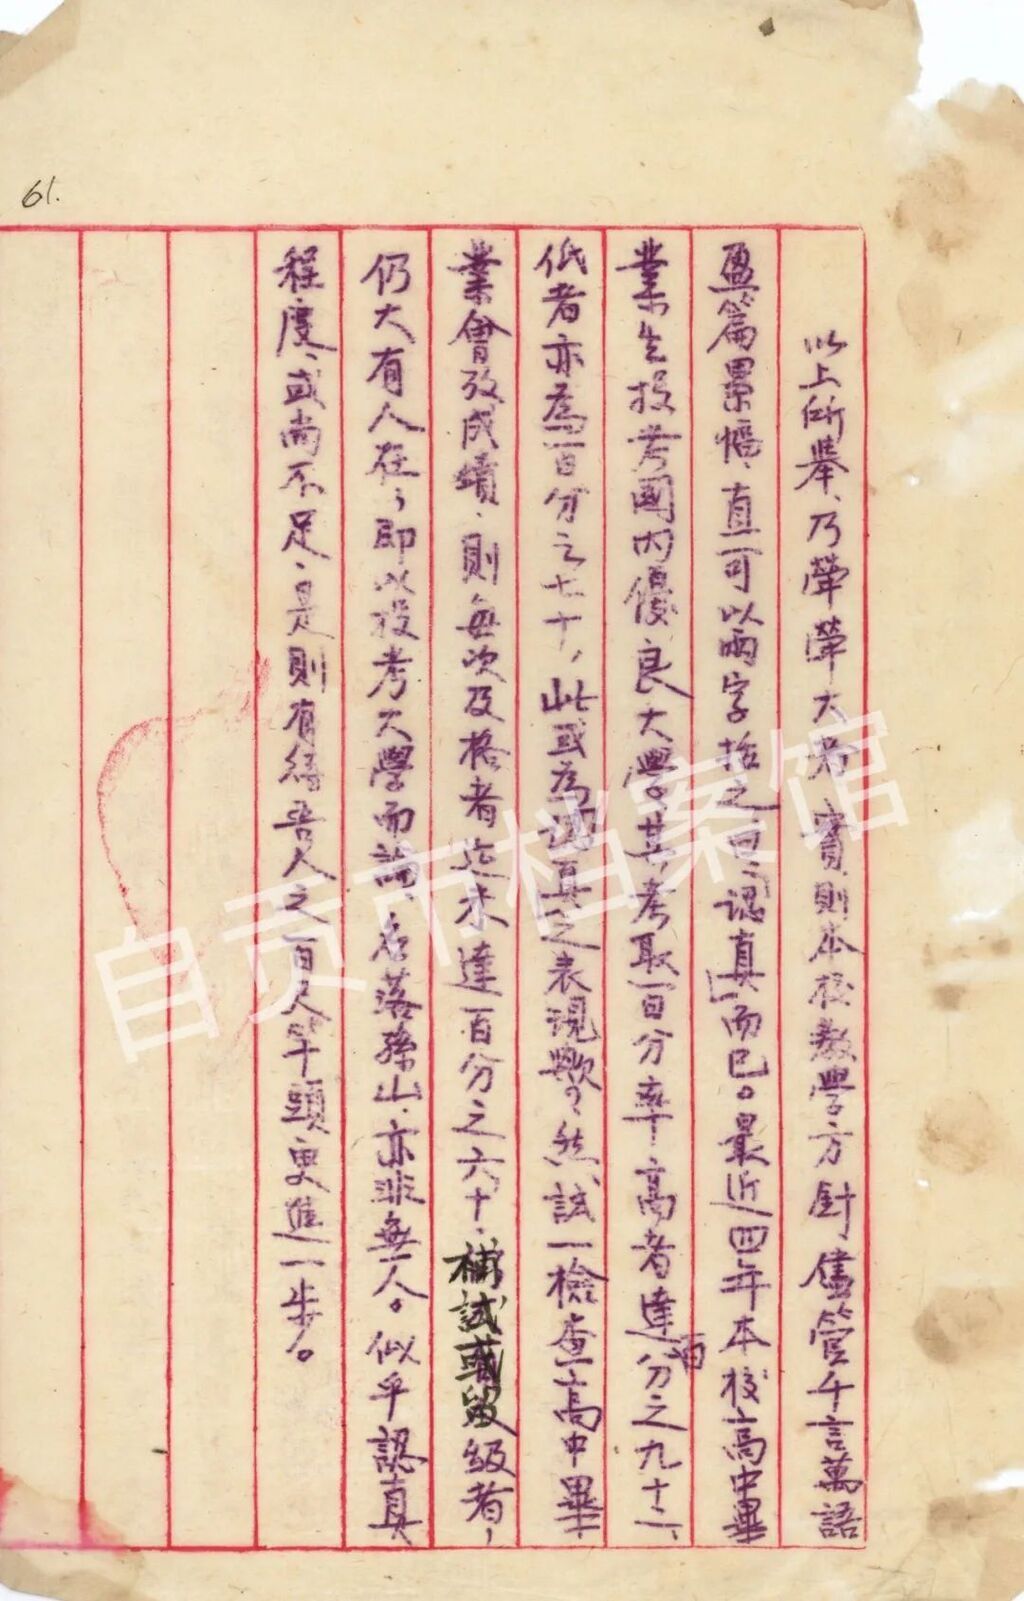 61.
以上所舉、乃犖犖大者、實則本校教學方針儘管千言萬語
盈篇累幅、直可以兩字括之曰「認真」而已。最近四年本校高中畢
業生投考國內優良大學、其考取百分率高者達百分之九十二、
低者亦為百分之七十，此或為認真之表現歟？然試一檢查高中畢
業會攷成績、則每次及格者迄未達百分之六十、補試或留級者，
仍大有人在，即以投考大學而論、名落孫山、亦非無人。似乎認真
程度、或尚不足、是則有待吾人之百尺竿頭更進一步。
自贡市档案馆